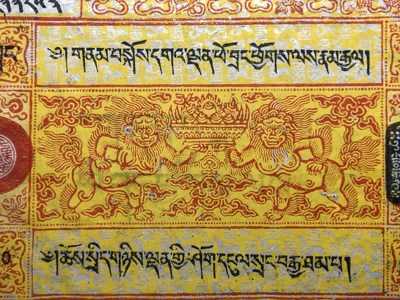 ༄། གནམ་བསྐོས་དགའ་ལྡན་ཕོ་བྲང་ཕྱོགས་ལས་རྣམ་རྒྱལ།
༄།ཆོས་སྲིད་གཉིས་ལྡན་གྱི་ཤོག་དངུལ་སྲང་བརྒྱ་ཐམ་པ།